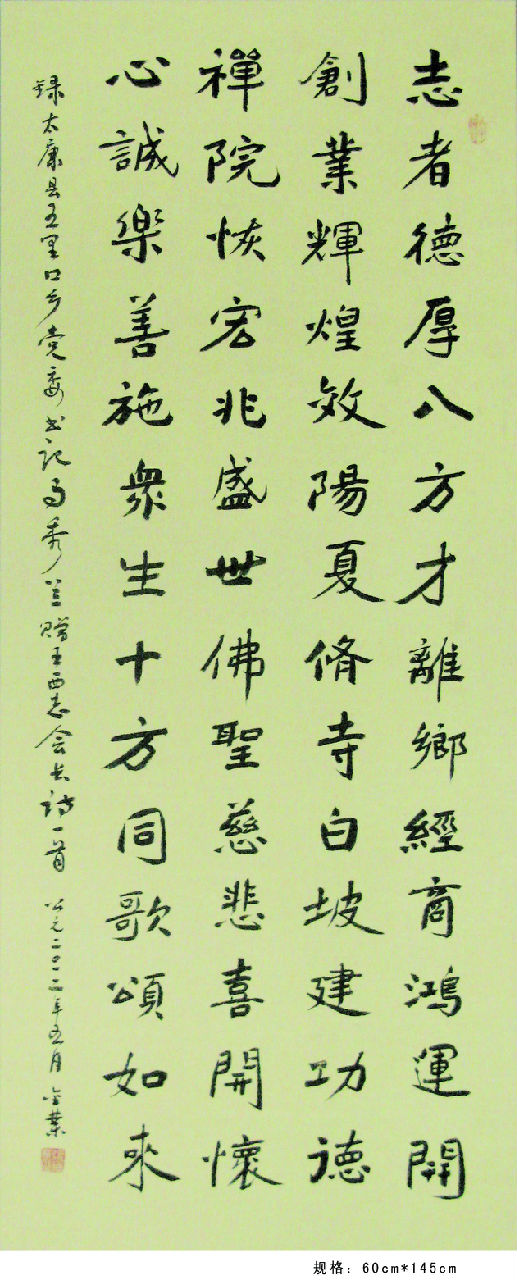 志者德厚八方才離鄉經商鴻運開
創業輝煌效陽夏脩寺白坡建功德
禪院恢宏兆盛世佛聖慈悲喜開懷
心誠樂善施衆生十方同歌頌如來
録太康县五里口乡党委书记马秀兰赠王西志会长诗一首 公元二〇一二年五月 金業
规格：60cm*145cm